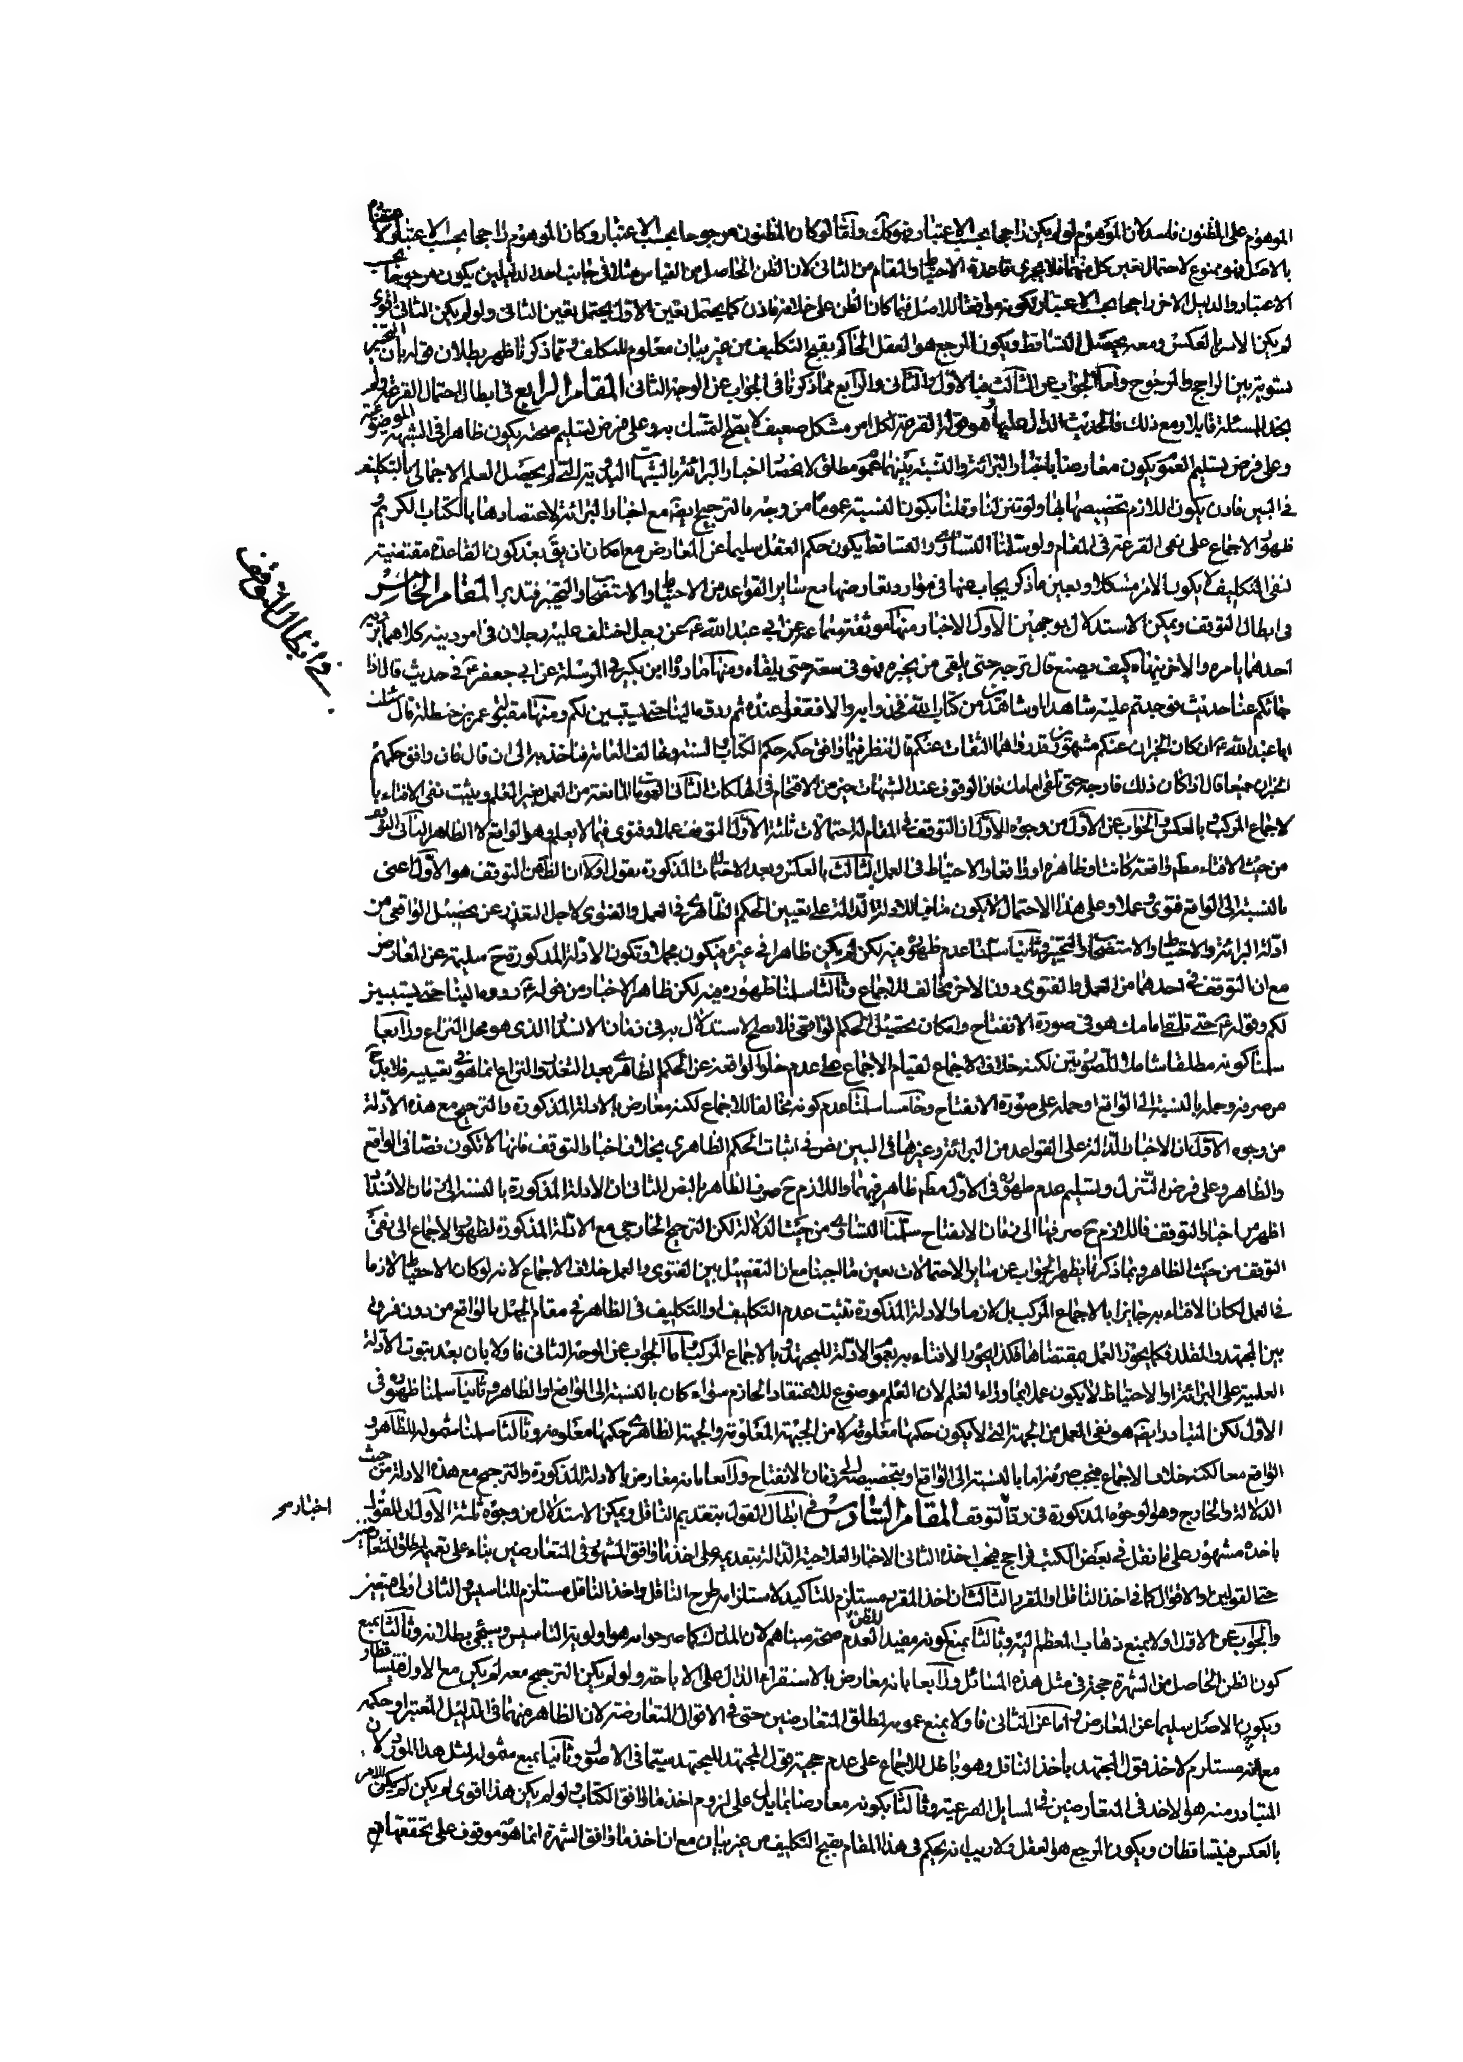 الموهوم على المظنون فاسد لان الموهوم لو لم يكن راجحا بحسب الاعتبار فهو كك واما لو كان المظنون مرجوحا بحسب الاعتبار وكان الموهوم راجحا بحسب الاعتبار
بالاصل فهو ممنوع لاحتمال تعين كل منهما فلا يجرى قاعدة الاحتياط والمقام من الثانى لان الظن الحاصل من القياس مثلا فى جانب احد الدليلين يكون مرجوحا بحسب
الاعتبار والدليل الاخر راجحا بحسب الاعتبار لكونه موافقا للاصل فيما كان الظن على خلافه فاذن كما يحتمل تعين الاول يحتمل تعين الثانى ولو لم يكن الثانى اقوى
لم يكن الامر بالعكس ومعه يحصل التساقط ويكون المرجع هو العقل الحاكم بقبح التكليف من غير بيان معلوم للمكلف ومما ذكرنا ظهر بطلان
تسوية بين الراجح والمرجوح واما الجواب عن الثالث الاول والثانى والرابع مما ذكرنا فى الجواب عن الوجه الثانى المقام الرابع فى ابطال احتمال القرعة ولم
نجد للمسئلة قايلا ومع ذلك فالحديث الدال عليها وهو قوله القرعة لكل امر مشكل ضعيف لا يصح التمسك به وعلى فرض تسليم صحته يكون ظاهرا فى الشبهة الموضوعية
وعلى فرض تسليم العموم يكون معارضا باخبار البرائة والنسبة بينهما عموم مطلق لاختصاص اخبار البرائة بالشبهات البدوية التى لم يحصل العلم الاجمالى بالتكليف
فى البين فاذن يكون اللازم تخصيصها بها ولو تنزلنا وقلنا بكون النسبة عموما من وجه فالترجيح ايضا مع اخبار البرائة لاعتضادها بالكتاب الكريم و
ظهور الاجماع على نفى القرعة فى المقام ولو سلمنا التساوى والتساقط يكون حكم العقل سليما عن المعارض مع امكان ان يق بعد كون القاعدة مقتضية
لنفى التكليف لا يكون الامر مشكلا وبعين ما ذكر يجاب عنها فى موارد تعارضها مع ساير القواعد من الاحتياط والاستصحاب والتخيير فتدبر المقام الخامس
فى ابطال التوقف ويمكن الاستدلال بوجهين الاول الاخبار منها موثقة سماعة عن ابى عبد الله ع عن رجل اختلف عليه رجلان فى امر دينه كلاهما يرويه
احدهما يامره والاخر ينهاه كيف يصنع قال يرجه حتى يلقى من يخبره فهو فى سعة حتى يلقاه ومنها ما رواه ابن بكير فى المرسلة عن ابى جعفر ع فى حديث قال اذا
جائكم عنا حديث فوجدتم عليه شاهدا او شاهدين من كتاب الله فخذوا به والا فقفوا عنده ثم ردوه الينا حتى يستبين لكم ومنها مقبولة عمر بن حنظلة قال سئلت
ابا عبد الله ع ان كان الخبران عنكم مشهورين قد رواهما الثقات عنكم قال ينظر فيما وافق حكمه حكم الكتاب والسنة وخالف العامة فياخذ به الى ان قال فان وافق حكمهم
الخبران جميعا قال اذا كان ذلك فارجه حتى تلقى امامك فان الوقوف عند الشبهات خير من الاقتحام فى الهلكات الثانى العمومات المانعة من العمل بغير العلم ويثبت نفى الافتاء با
لاجماع المركب و بالعكس والجواب عن الاول من وجوه الاول ان التوقف فى المقام له احتمالات ثلثة الاول التوقف عملا وفتوى فيما لا يعلم وهو الواقع لا الظاهر الثانى التوقف
من حيث الافتاء مط واقعية كانت او ظاهرية والاحتياط فى العمل الثالث بالعكس وبعد الاحتمالات المذكورة نقول اولا ان الظاهر من التوقف هو الاول اعنى
بالنسبة الى الواقع فتوى وعملا وعلى هذا الاحتمال لا يكون منافيا للادلة الدالة على تعيين الحكم الظاهرى فى العمل والفتوى لاجل التعذر عن تحصيل الواقعى من
ادلة البرائة والاحتياط والاستصحاب والتخيير وثانيا سلمنا عدم ظهوره فيه لكن لم يكن ظاهرا فى غيره فيكون مجملا وتكون الادلة المذكورة ح سليمة عن المعارض
مع ان التوقف فى احدهما من العمل والفتوى دون الاخر مخالف للاجماع وثالثا سلمنا ظهوره فيه لكن ظاهر الاخبار من قوله ع ردوه الينا حتى يستبين
لكم وقوله ع حتى تلقى امامك هو فى صورة الانفتاح وامكان تحصيل الحكم الواقعى فلا يصح الاستدلال به فى زمان الانسداد الذى هو محل النزاع ورابعا
سلمنا كونه مطلقا شاملا للصورتين لكنه خلاف الاجماع لقيام الاجماع على عدم خلو الواقعة عن الحكم الظاهرى بعد التعذر والنزاع انما هو فى تعيينه فلا بد ح
من صرفه وحمله بالنسبة الى الواقع او حمله على صورة الانفتاح وخامسا سلمنا عدم كونه مخالفا للاجماع لكنه معارض بالادلة المذكورة والترجيح مع هذه الادلة
من وجوه الاول ان الاخبار الدالة على القواعد من البرائة وغيرها فى البين نص فى اثبات الحكم الظاهرى بخلاف اخبار التوقف فانها لا تكون نصا فى الواقع
والظاهر وعلى فرض التنزل وتسليم عدم ظهوره فى الاول مط ظاهر فيهما واللازم ح صرف الظاهر بالنص الثانى ان الادلة المذكورة بالنسبة الى زمان الانسداد
اظهر من اخبار التوقف فاللازم ح صرفها الى زمان الانفتاح سلمنا التساوى من حيث الدلالة لكن الترجيح الخارجى مع الادلة المذكورة لظهور الاجماع الى نفى
التوقف من حيث الظاهر ومما ذكرنا يظهر الجواب عن ساير الاحتمالات بعين ما اجبنا مع ان التفصيل بين الفتوى والعمل خلاف الاجماع لانه لو كان الاحتياط لازما
فى العمل لكان الافتاء به جايزا بالاجماع المركب بل لازما والادلة المذكورة تثبت عدم التكليف او التكليف فى الظاهر فى مقام الجهل بالواقع من دون فرق
بين المجتهد والمقلد فكما يجوز العمل بمقتضاها فكذا يجوز الافتاء به بعموم الادلة للمجتهد و بالاجماع المركب واما الجواب عن الوجه الثانى فاولا بان بعد ثبوت الادلة
العلمية على البرائة او الاحتياط لا يكون عملا بما وراء العلم لان العلم موضوع للاعتقاد الجازم سواء كان بالنسبة الى الواقع او الظاهر وثانيا سلمنا ظهوره فى
الاول لكن المتبادر ايضا هو نفى العمل من الجهة التى لا يكون حكمها معلومة لا من الجهة المعلومة والجهة الظاهرى حكمها معلومة وثالثا سلمنا شموله للظاهر و
الواقع معا لكنه خلاف الاجماع فيجب صرفه اما بالنسبة الى الواقع او بتخصيصه الى زمان الانفتاح ورابعا بانه معارض بالادلة المذكورة والترجيح مع هذه الادلة من حيث
الدلالة والخارج وهو الوجوه المذكورة فى رد التوقف المقام السادس فى ابطال القول بتقديم الناقل ويمكن الاستدلال من وجوه ثلثة الاول ان القول
باخذه مشهور على ما نقل فى بعض الكتب فراجع فيجب اخذه الثانى الاخبار العلاجية الدالة بتقديمه على اخذ ما وافق المشهور فى المتعارضين بناء على تعميمه لمطلق المتعارضين
حتى القولين والاقوال كما فى اخذ الناقل والمقرر الثالث ان اخذ المقرر مستلزم للتاكيد لاستلزامه طرح الناقل واخذ الناقل مستلزم للتاسيس والثانى اولى من غير
والجواب عن الاول اولا بمنع ذهاب المعظم اليه وثانيا بمنع كونه مفيدا للظن لعدم صحة مبناهم لان المدرك كما صرحوا به هو اولوية التاسيس وسيجئ بطلانه وثالثا بمنع
كون الظن الحاصل من الشهرة حجة فى مثل هذه المسائل ورابعا بانه معارض بالاستقراء الدال على الاباحة ولو لم يكن الترجيح معه لم يكن مع الاول فيتساقطان
ويكون الاصل سليما عن المعارض واما عن الثانى فاولا بمنع عمومه لمطلق المتعارضين حتى فى الاقوال المتعارضة لان الظاهر منهما فى الدليل المعتبر او حكمه
مع انه مستلزم لاخذ قول المجتهد باخذ الناقل وهو باطل للاجماع على عدم حجية قول المجتهد للمجتهد سيما فى الاصول وثانيا بمنع شموله لمثل هذا المورد لان
المتبادر منه هو الاخذ فى المتعارضين فى المسايل الفرعية وثالثا بكونه معارضا بما يدل على لزوم اخذ ما وافق الكتاب ولو لم يكن هذا اقوى لم يكن الامر
بالعكس فيتساقطان ويكون المرجع هو العقل ولا ريب انه يحكم فى هذا المقام بقبح التكليف من غير بيان مع ان اخذ ما وافق الشهرة انما هو موقوف على تحققها
فى ابطال التوقف